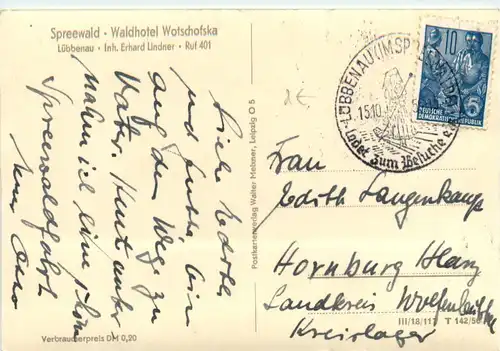 Spreewald · Waldhotel Wotschofska
Lübbenau · Inh. Erhard Lindner · Ruf 401
Liebe Edith
und Mutti, bin
auf dem Wege zu
Vater. Heute
mache ich eine schöne
Spreewaldfahrt.
Verbraucherpreis DM 0,20
Postkartenverlag Walter Meixner, Leipzig O 5
LÜBBENAU (IM SPREEWALD)
15.10.
Ladet zum Besuche ein
10
DEUTSCHE
DEMOKRATISCHE REPUBLIK
Frau
Edith Langenkamp
Hornburg Harz
Landkreis Wolfenbüttel
Kreislager
III/18/117 T 142/56